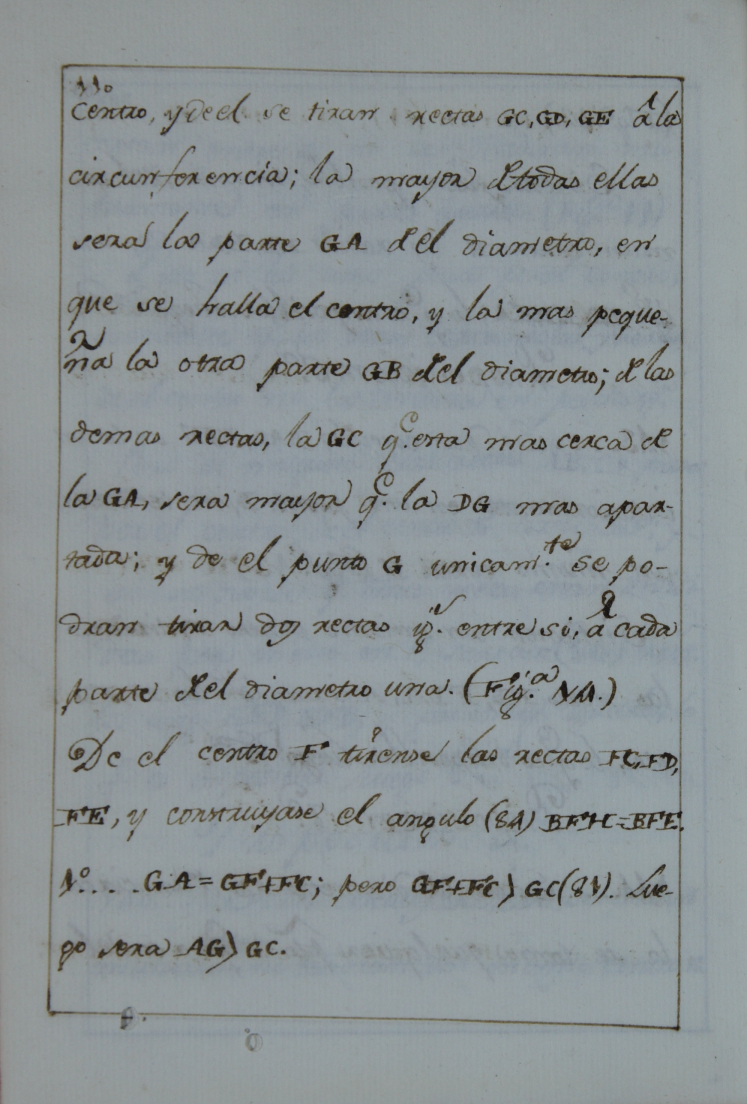 110
Centro, y de el se tiran rectas GC, GD, GE à la
circunferencia; la mayor de todas ellas
será la parte GA del diametro, en
que se halla el centro, y la mas peque-
ña la otra parte GB del diametro; de las
demas rectas, la GC q.e esta mas cerca de
la GA, sera mayor q.e la DG mas apar-
tada; y de el punto G unicam.te se po-
dran tirar dos rectas ig.s entre si, à cada
parte del diametro una. (Fig.a
De el centro F tirense las rectas FC, FD,
FE, y construyase el angulo (81) BFH=BFE.
1º..... GA=GF+FC; pero GF+FC > GC (81). Lue-
go sera AG > GC.